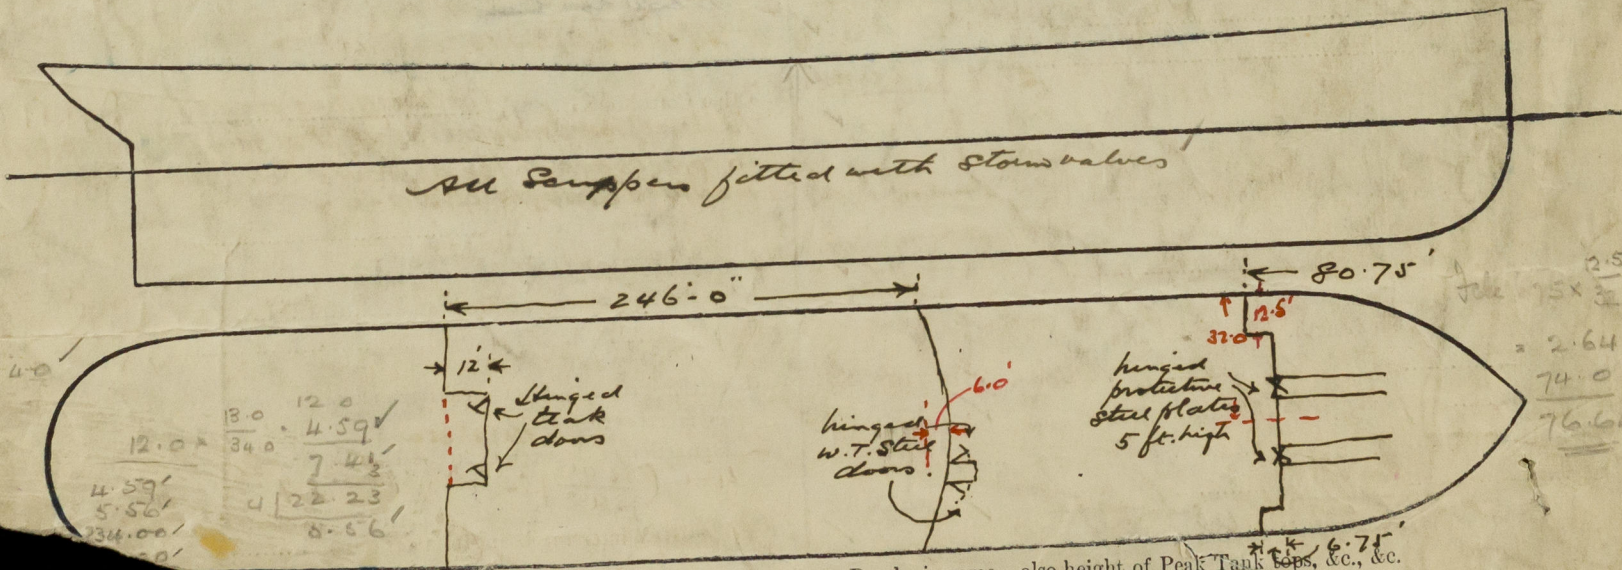 All Scuppers fitted with storm valves
246'-0"
80.75'
12.5'
32.0
12'
Hinged
teak
doors
6.0'
hinged
W.T. Steel
doors
hinged
protective
steel plates
5 ft. high
6.75'
4.0
12.0
13.0
34.0
12 0
4.59
7.41
3
4 | 22.23
5.56
4.59'
5.56'
334.00'
75 x
12.5
= 2.64
74.0
76.6
also height of Peak Tank tops, &c., &c.